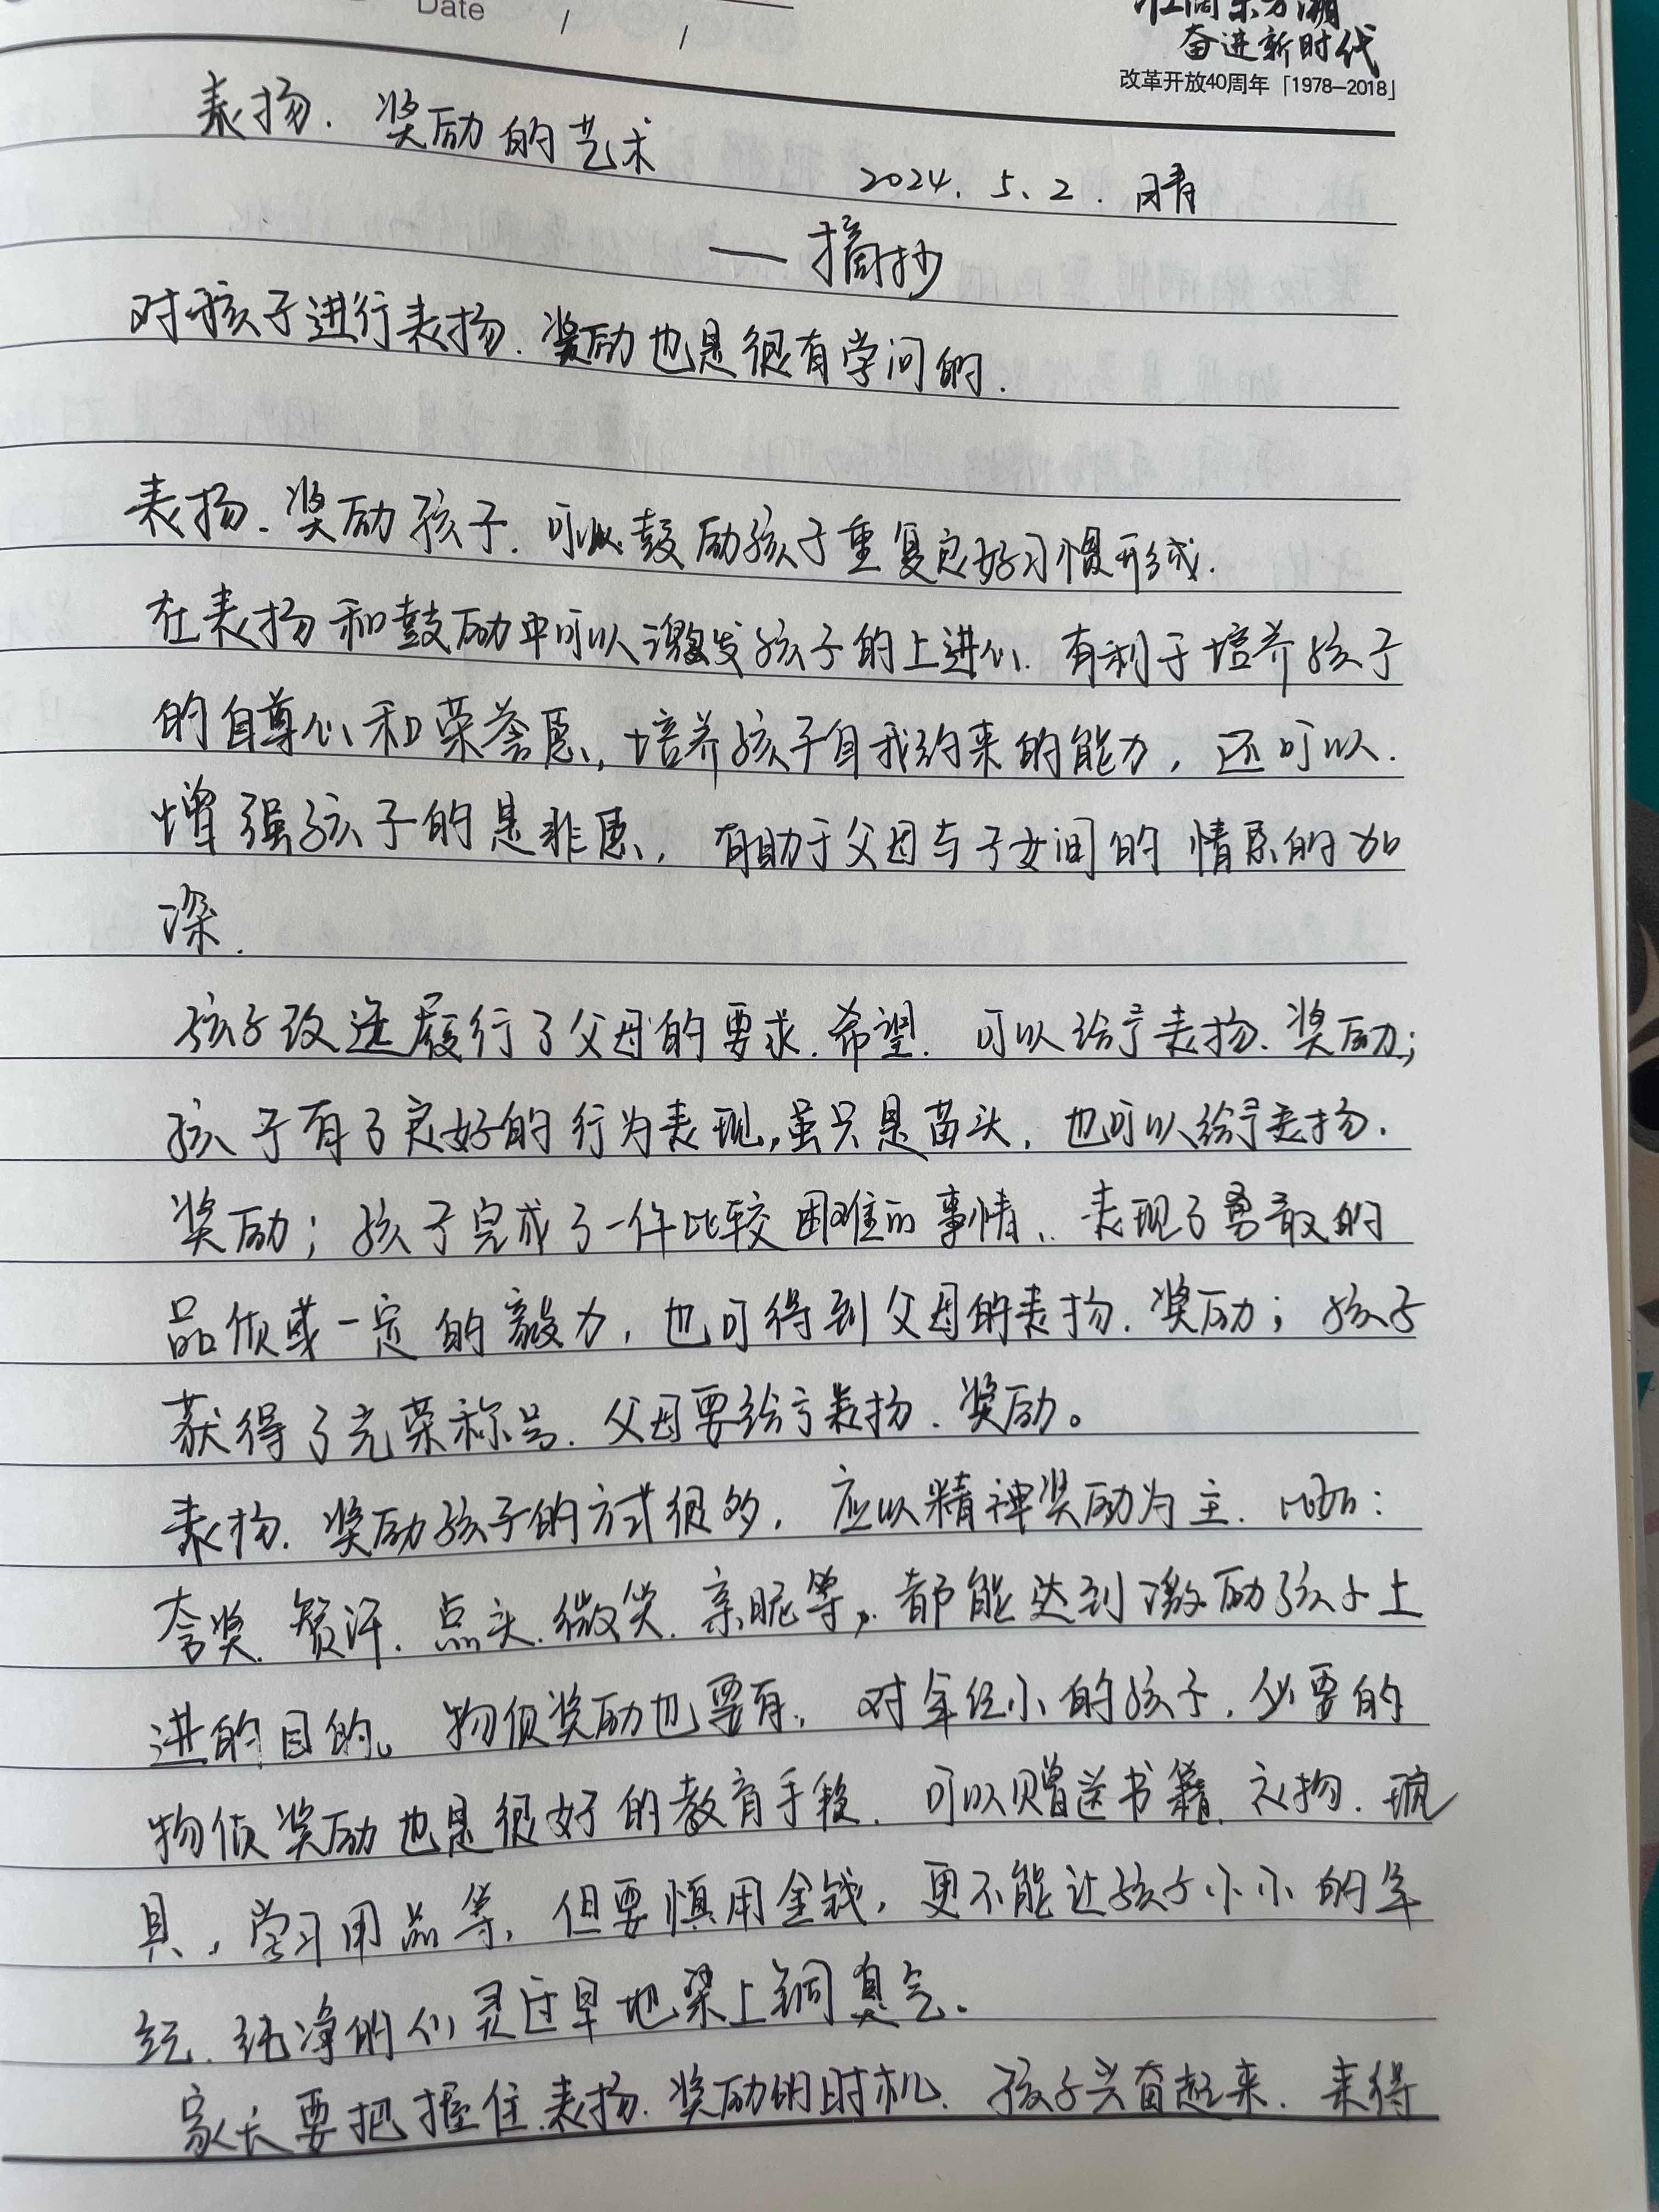 Date / /
奋进新时代
改革开放40周年「1978-2018」
表扬.奖励的艺术
2024.5.2.晴
——摘抄
对孩子进行表扬.奖励也是很有学问的.
表扬.奖励孩子.可以鼓励孩子重复良好习惯形成.
在表扬和鼓励中可以激发孩子的上进心.有利于培养孩子
的自尊心和荣誉感,培养孩子自我约束的能力,还可以.
增强孩子的是非感,有助于父母与子女间的情感的加
深.
孩子改进履行了父母的要求.希望.可以给予表扬.奖励;
孩子有了良好的行为表现,虽只是苗头,也可以给予表扬.
奖励;孩子完成了一件比较困难的事情,表现了勇敢的
品质或一定的毅力,也可得到父母的表扬.奖励;孩子
获得了光荣称号.父母要给予表扬.奖励。
表扬.奖励孩子的方式很多,应以精神奖励为主.比如:
夸奖.赞许.点头.微笑.亲昵等,都能达到激励孩子上
进的目的。物质奖励也要有,对年纪小的孩子,必要的
物质奖励也是很好的教育手段.可以赠送书籍.礼物.玩
具,学习用品等,但要慎用金钱,更不能让孩子小小的年
纪.纯净的心灵过早地染上铜臭气.
家长要把握住表扬.奖励的时机.孩子兴奋起来.来得